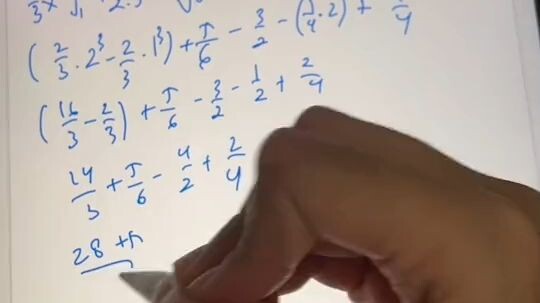 (2/3 · 2³ - 2/3 · 1³) + 5/6 - 3/2 - (1/4 · 2) +
(16/3 - 2/3) + 5/6 - 3/2 - 1/2 + 2/4
14/3 + 5/6 - 4/2 + 2/4
28 + 5